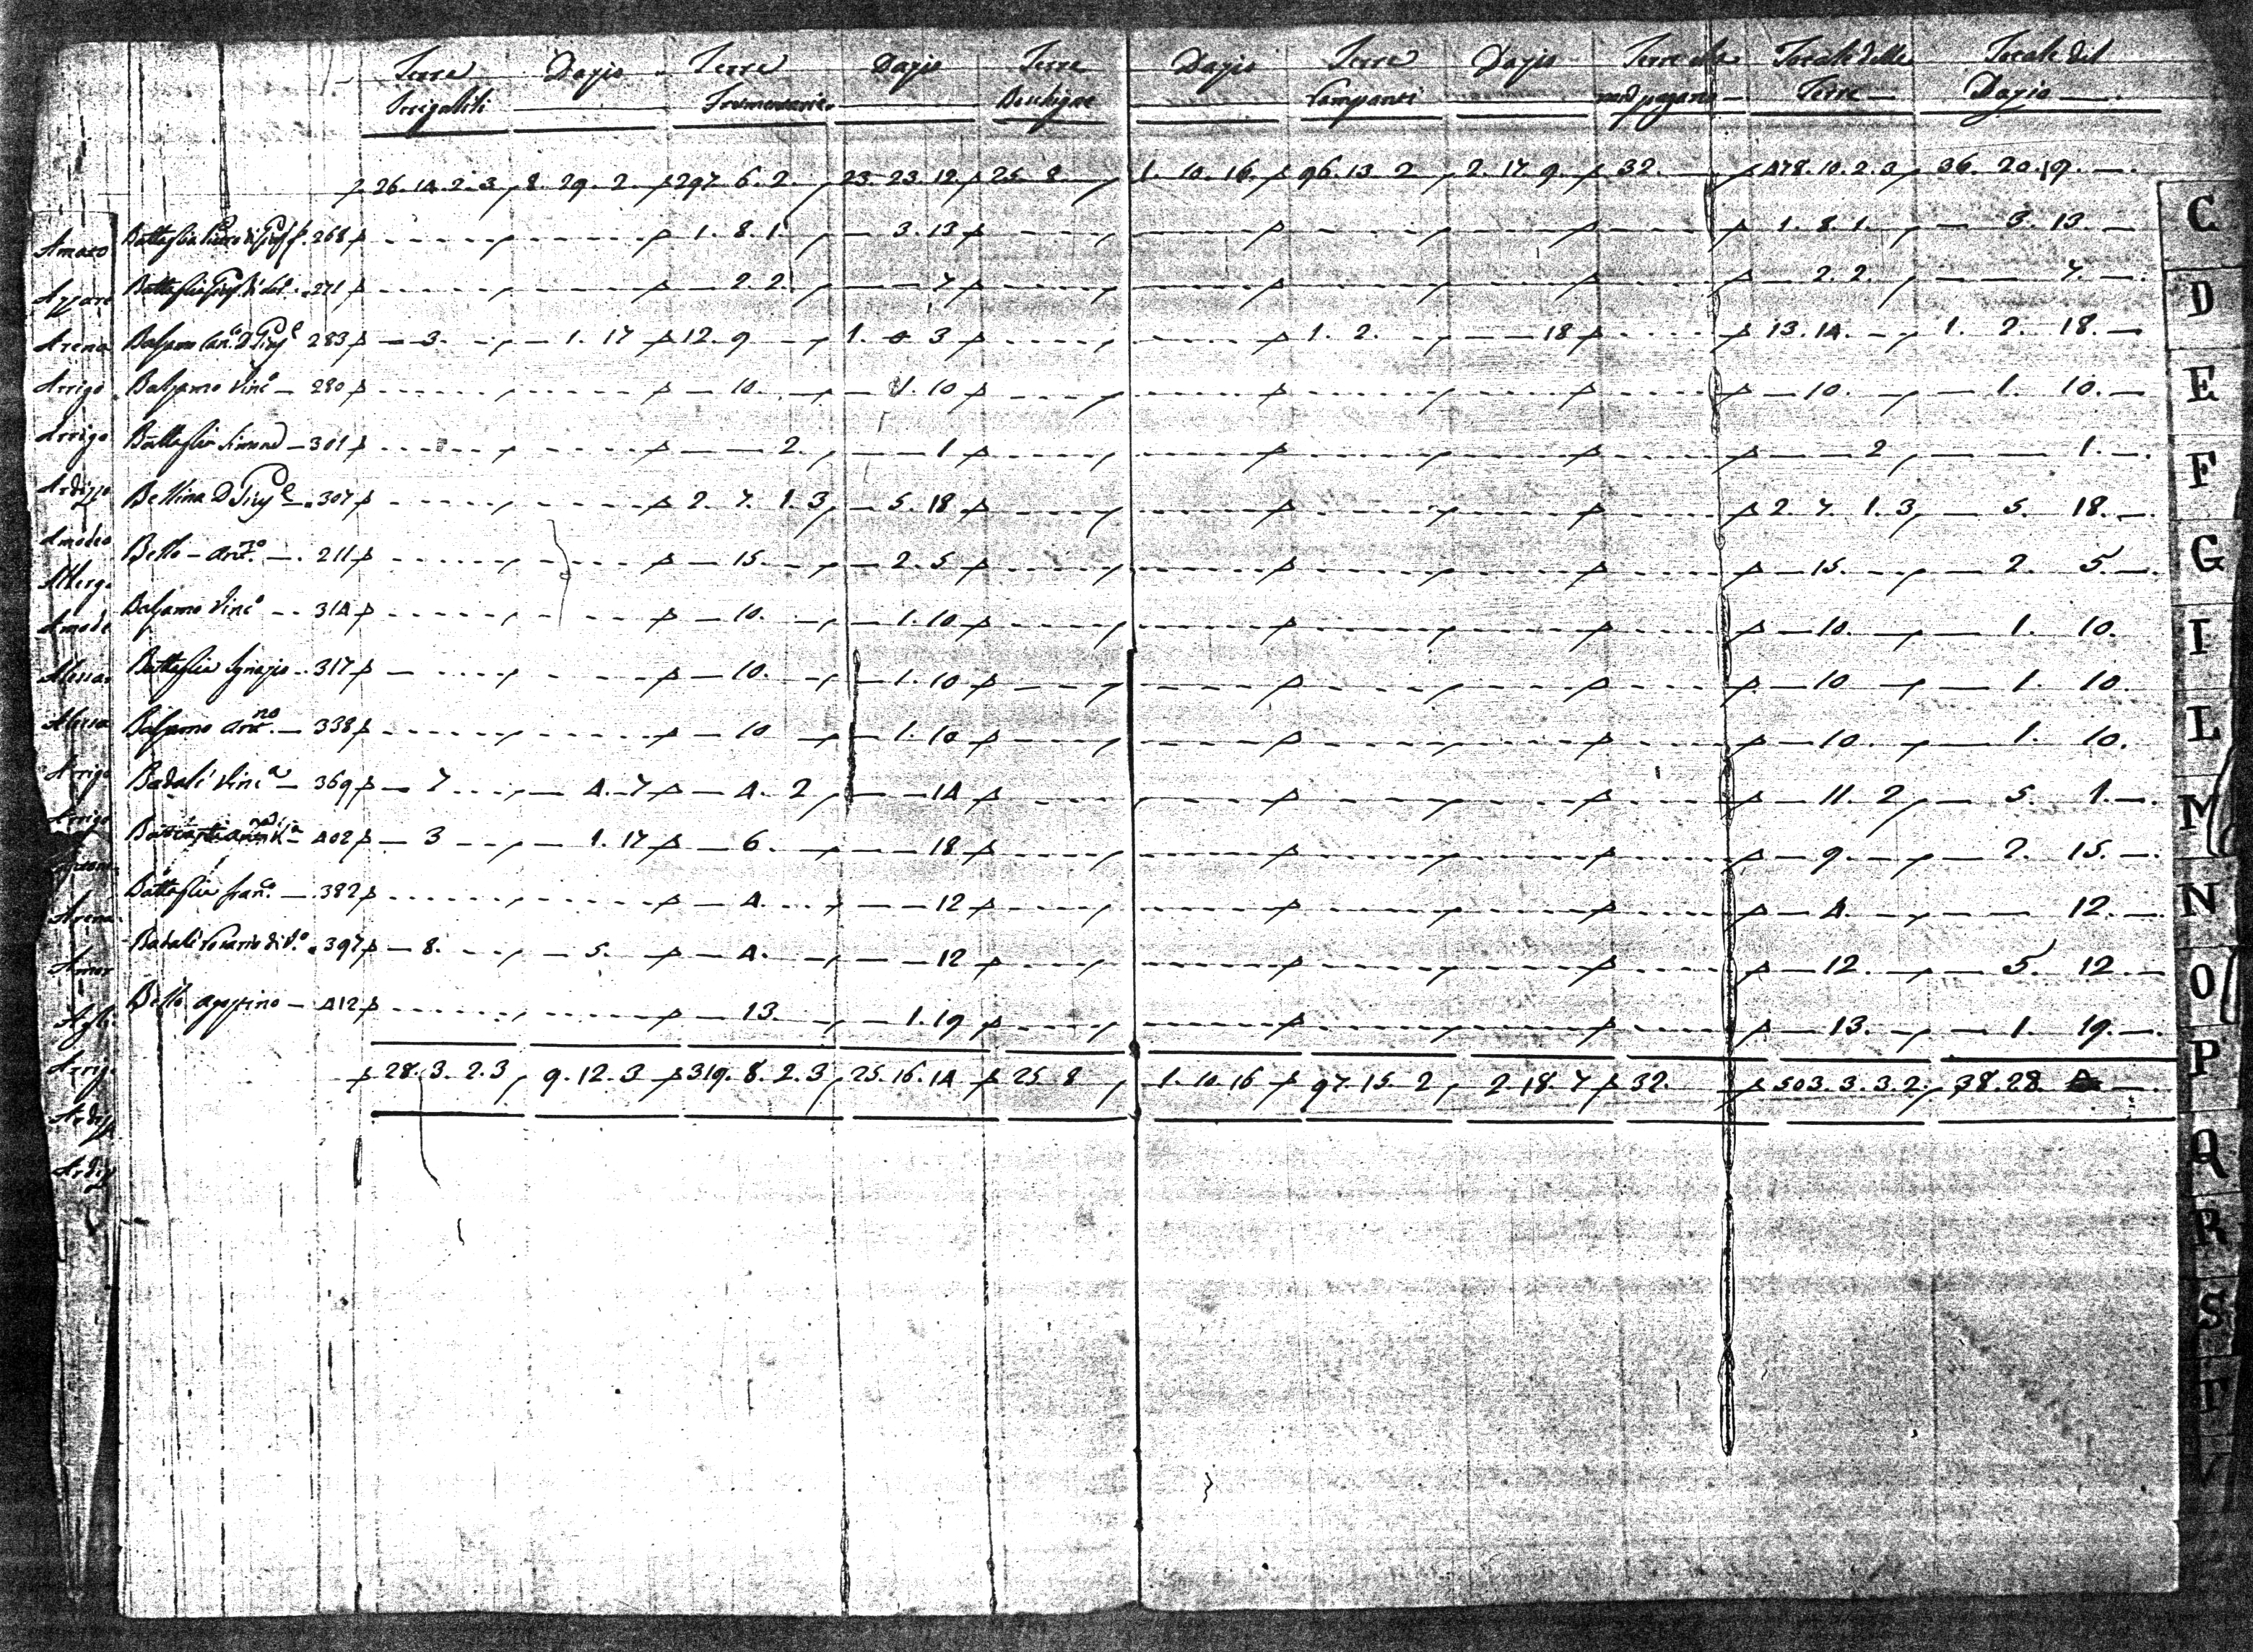 Terre Dazio Terre Dazio Terre Dazio Terre Dazio Terre che Totale delle Totale del
Irrigabili Frumentarie Boschigne Campanti non pagano Terre Dazio
26. 14. 2. 3 8. 29. 2. 297. 6. 2. 23. 23. 12 25. 8 1. 10. 16. 96. 13. 2 2. 17. 9. 32. 478. 10. 2. 3 36. 20. 19.
Amato Battaglia Pietro di 268 1. 8. 1 3. 13 1. 8. 1. 3. 13.
Azzare Battaglia 271 2. 2 7 2. 2. 7.
Arena Balsamo 283 3. 1. 17 12. 9 1. 0 3 1. 2. 18 13. 14. 1. 2. 18.
Arrigo Balsamo Vinc.o 280 10. 1. 10 10. 1. 10.
Arrigo Battaglia Simone 301 2. 1 2 1.
Ardizzo Bellina D. 307 2. 7. 1. 3 5. 18 2. 7. 1. 3 5. 18.
Amodeo Bello Ant.no 211 15. 2. 5 15. 2. 5.
Alberg.
Amode Balsamo Vinc.o 314 10. 1. 10 10. 1. 10.
Alessa Battaglia Ignazio 317 10. 1. 10 10 1. 10.
Balsamo Ant.no 338 10 1. 10 10. 1. 10.
Arrigo Badali Vinc.a 369 7 4. 7 4. 2 14 11. 2 5. 1.
Arrigo 402 3 1. 17 6. 18 9. 2. 15.
Battaglia Fran.co 382 4. 12 4. 12.
Arena
Badali Rosario di V.o 397 8. 5. 4. 12 12. 5. 12
Bello Agostino 412 13. 1. 19 13. 1. 19.
Arrig. 28. 3. 2. 3 9. 12. 3 319. 8. 2. 3 25. 16. 14 25. 8 1. 10. 16 97. 15. 2 2. 18. 7 32. 503. 3. 3. 2. 38. 28.
Ardizz
Ardiz
C
D
E
F
G
I
L
M
N
O
P
Q
R
S
T
V